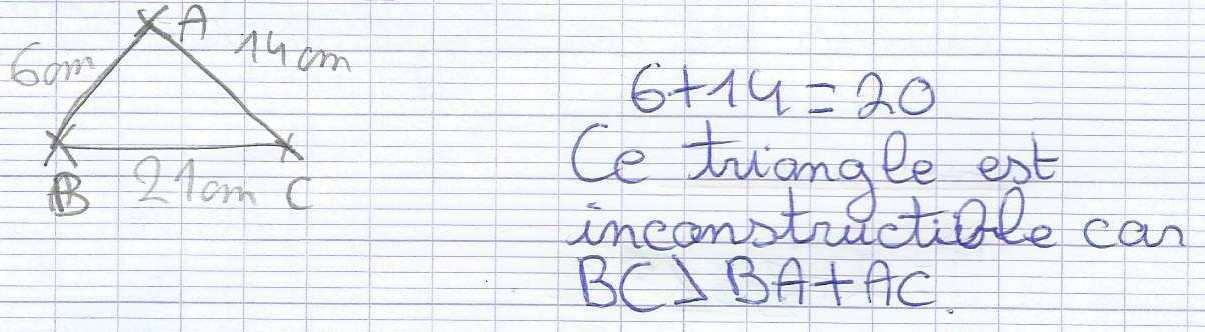 A
6cm
14cm
B
21cm
C
6+14=20
Ce triangle est
inconstructible car
BC > BA+AC.